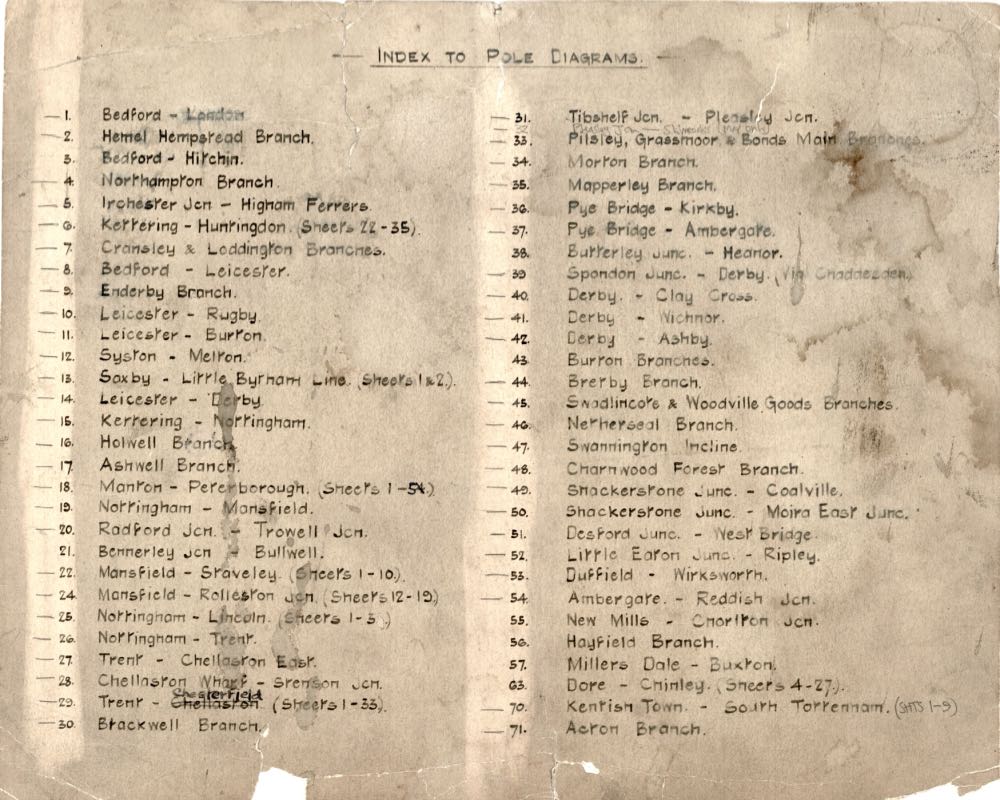 INDEX TO POLE DIAGRAMS.
1. Bedford - London
2. Hemel Hempstead Branch.
3. Bedford - Hitchin.
4. Northampton Branch.
5. Irchester Jcn - Higham Ferrers.
6. Kettering - Huntingdon. (Sheets 22-35).
7. Cransley & Loddington Branches.
8. Bedford - Leicester.
9. Enderby Branch.
10. Leicester - Rugby.
11. Leicester - Burton.
12. Syston - Melton.
13. Saxby - Little Bytham Line. (Sheets 1&2.).
14. Leicester - Derby.
15. Kettering - Nottingham.
16. Holwell Branch.
17. Ashwell Branch.
18. Manton - Peterborough. (Sheets 1-54.)
19. Nottingham - Mansfield.
20. Radford Jcn. - Trowell Jcn.
21. Bennerley Jcn - Bullwell.
22. Mansfield - Staveley. (Sheets 1-10.).
24. Mansfield - Rolleston Jcn. (Sheets 12-19)
25. Nottingham - Lincoln. (Sheets 1-3.)
26. Nottingham - Trent.
27. Trent - Chellaston East.
28. Chellaston Wharf - Stenson Jcn.
Chesterfield
29. Trent - Chellaston. (Sheets 1-33).
30. Blackwell Branch.
31. Tibshelf Jcn. - Pleasley Jcn.
32
33. Pilsley, Grassmoor & Bonds Main Branches.
34. Morton Branch.
35. Mapperley Branch.
36. Pye Bridge - Kirkby.
37. Pye Bridge - Ambergate.
38. Butterley Junc. - Heanor.
39 Spondon Junc. - Derby. (Via Chaddesden.)
40. Derby. - Clay Cross.
41. Derby - Wichnor.
42. Derby - Ashby.
43. Burton Branches.
44. Bretby Branch.
45. Swadlincote & Woodville Goods Branches.
46. Netherseal Branch.
47. Swannington Incline.
48. Charnwood Forest Branch.
49. Shackerstone Junc. - Coalville.
50. Shackerstone Junc. - Moira East Junc.
51. Desford Junc. - West Bridge.
52. Little Eaton Junc. - Ripley.
53. Duffield - Wirksworth.
54. Ambergate. - Reddish Jcn.
55. New Mills - Chorlton Jcn.
56. Hayfield Branch.
57. Millers Dale - Buxton.
63. Dore - Chinley. (Sheets 4-27.).
70. Kentish Town. - South Tottenham. (SHTS 1-9)
71. Acton Branch.